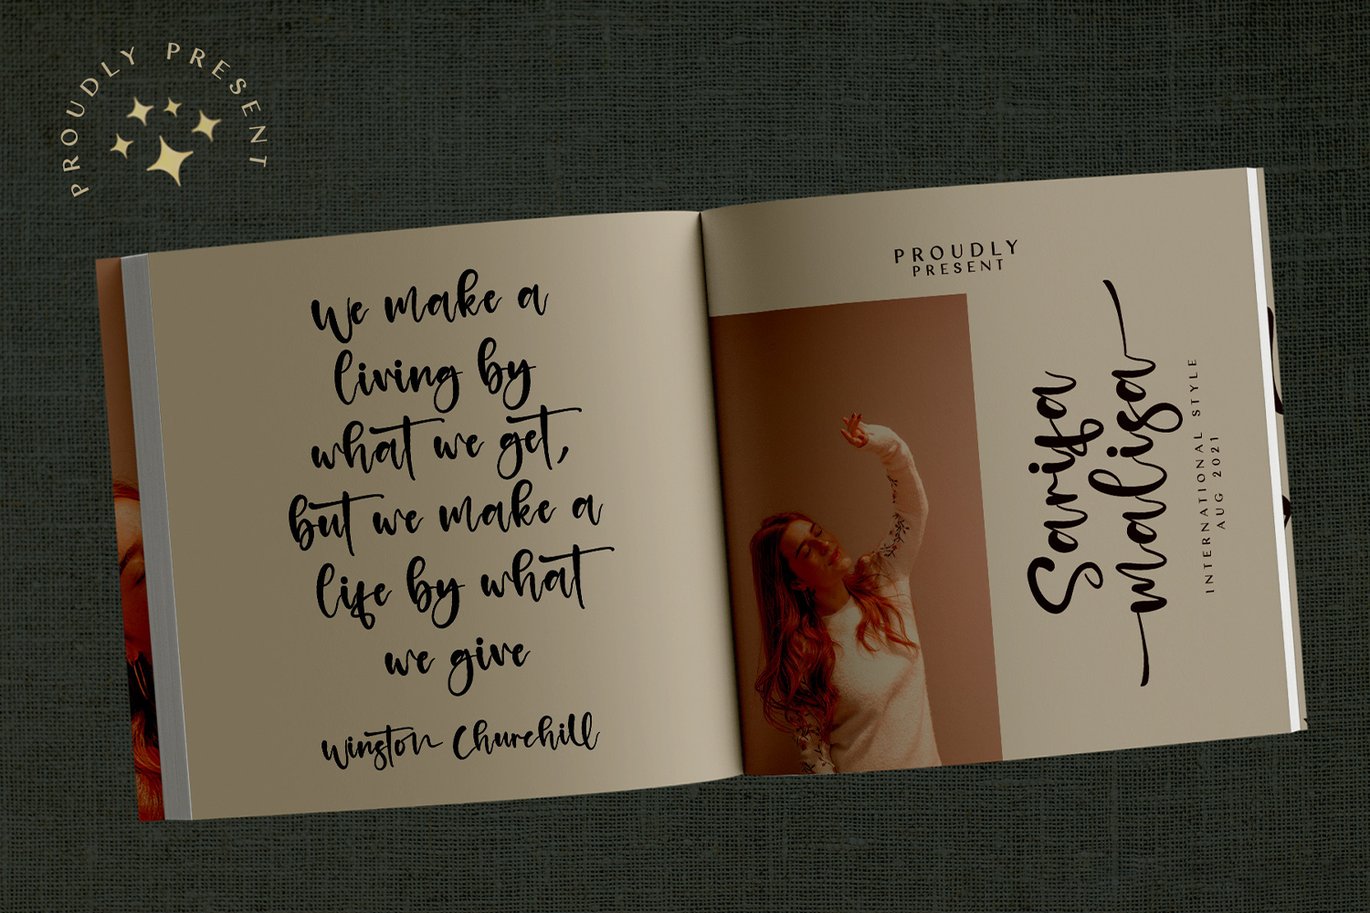 PROUDLY PRESENT
We make a
living by
what we get,
but we make a
life by what
we give
Winston Churchill
PROUDLY
PRESENT
Sarifa
malisa
INTERNATIONAL STYLE
AUG 2021